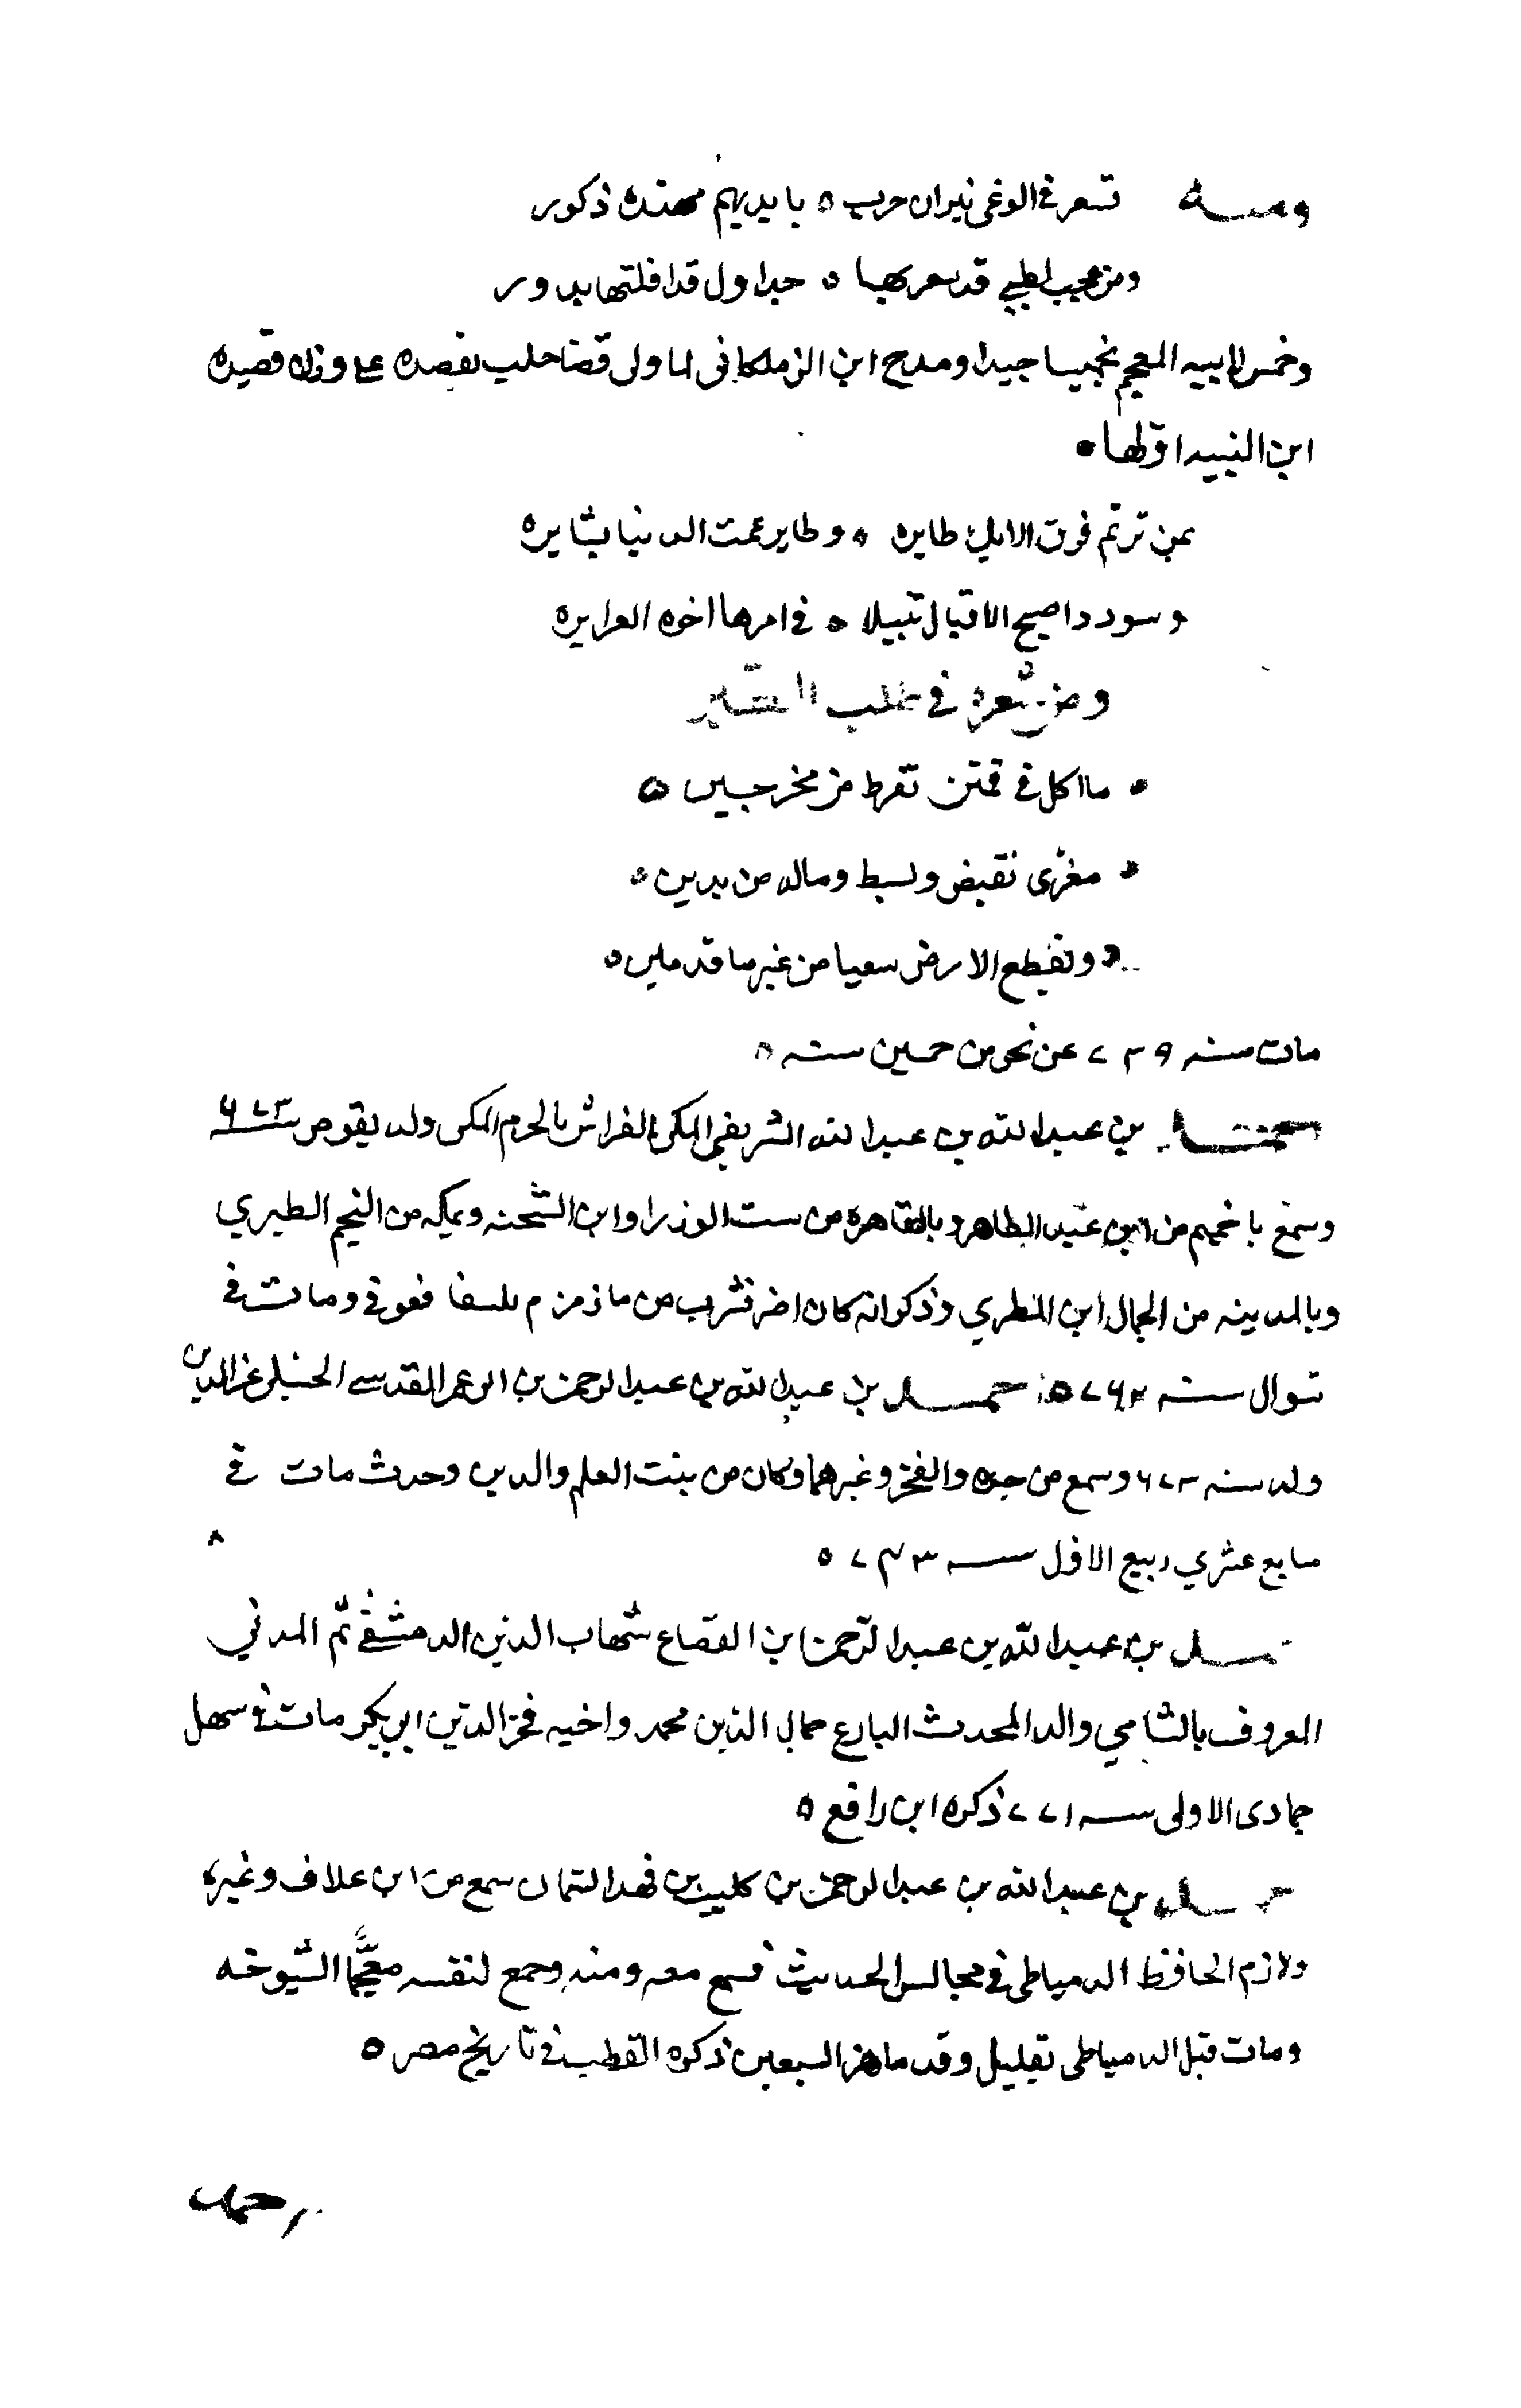 ومنه تسعر في الوغى نيران حرب ٥ بايديهم مهندة ذكور
ومن عجب لظى قد سعرتها ٥ جداول قد اقلتها بدور
وخمس لابيه المعجم تخميسا جيدا ومدح ابن الزملكاني لما ولى قضا حلب بقصيدة على وزان قصيدة
ابن النبيه اولها
يمن ترنم فوق الايك طايره ٥ وطاير عمت الدنيا بشايره
وسودد اصبح الاقبال ٥ في امرها اخوه
ومن شعره في
ما اكل في فمين تغوط من مخرجين ٥
مغرى بقبض وبسط وماله من يدين ٥
ويقطع الارض سعيا من غير ما قدمين ٥
مات سنه ٧٣٩ عن نحو من خمسين سنه ٥
بن عبد الله بن عبد الله الشريفي المكي الفراش بالحرم المكى ولد بقوص سنه ٦٧٣
وسمع باخميم من ابن عبد الظاهر وبالقاهرة من ست الوزرا وابن الشحنه وبمكه من النجم الطبري
وبالمدينه من الجمال ابن المطري وذكر انه كان اضر فشرب من ما زمزم للشفا فعوفي ومات في
شوال سنه ٧٦٢ ٥ احمد بن عبد الله بن عبد الرحمن بن ابي عمر المقدسي الحنبلي عز الدين
ولد سنه ٦٧٣ وسمع من جده والفخر وغيرهما وكان من بيت العلم والدين وحدث مات في
سابع عشري ربيع الاول سنه ٧٤٣ ٥
بن عبد الله بن عبد الرحمن ابن القصاع شهاب الدين الدمشقي ثم المدني
المعروف بالشامي والد المحدث البارع جمال الدين محمد واخيه فخر الدين ابي بكر مات في سهل
جمادى الاولى سنه ٧٧١ ذكره ابن رافع ٥
بن عبد الله بن عبد الرحمن بن كليب بن فهد سمع من ابن علاف وغيره
ولازم الحافظ الدمياطى في مجالس الحديث فسمع معه ومنه وجمع لنفسه معجما لشيوخه
ومات قبل الدمياطى بقليل وقد ناهز السبعين ذكره القطب في تاريخ مصر ٥